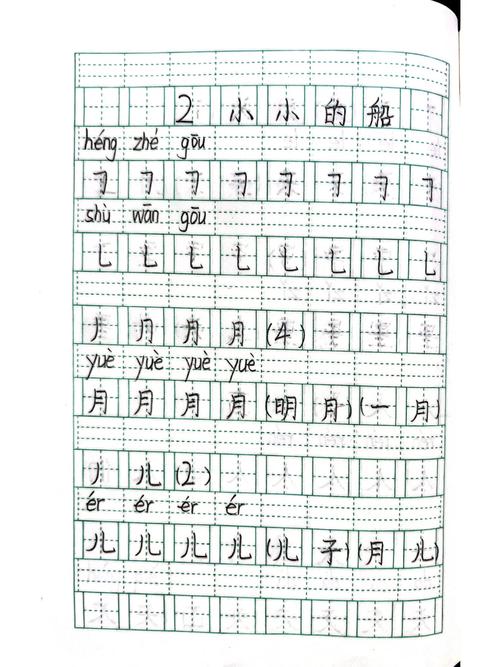 2 小小的船
héng zhé gōu
㇆ ㇆ ㇆ ㇆ ㇆ ㇆ ㇆ ㇆
shù wān gōu
乚 乚 乚 乚 乚 乚 乚 乚
丿 ⺆ 月 月 (4)
yuè yuè yuè yuè
月 月 月 月 (明月) (一月)
丿 儿 (2)
ér ér ér ér
儿 儿 儿 儿 (儿子) (月儿)